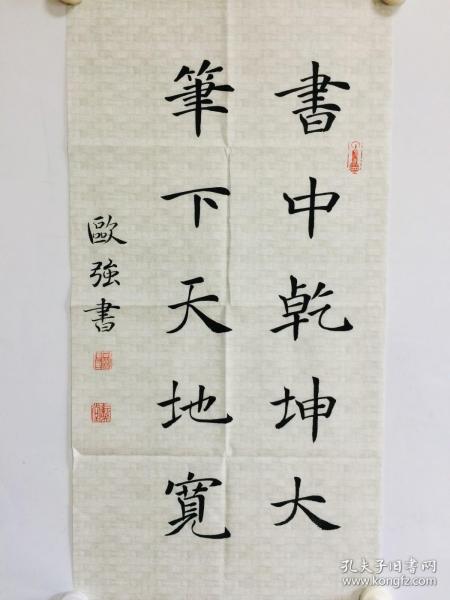 書中乾坤大
筆下天地寬
歐強書
孔夫子旧书网
www.kongfz.com